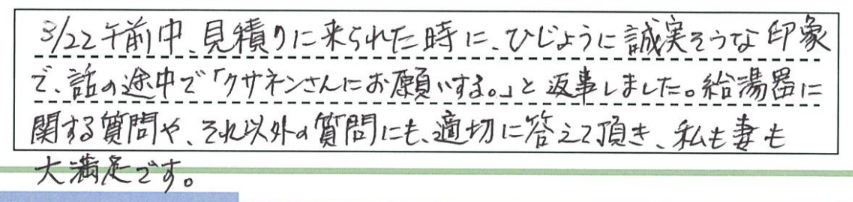 3/22午前中、見積りに来られた時に、ひじょうに誠実そうな印象
で、話の途中で「クサネンさんにお願いする。」と返事しました。給湯器に
関する質問や、それ以外の質問にも、適切に答えて頂き、私も妻も
大満足です。